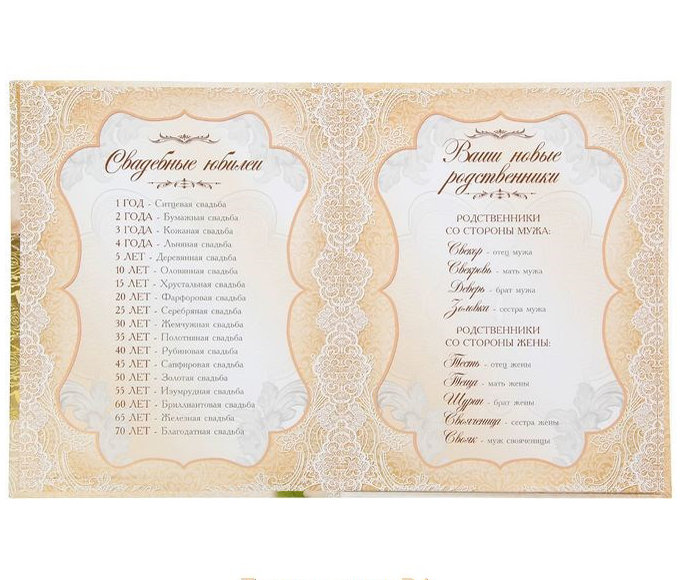 Свадебные юбилеи
1 ГОД - Ситцевая свадьба
2 ГОДА - Бумажная свадьба
3 ГОДА - Кожаная свадьба
4 ГОДА - Льняная свадьба
5 ЛЕТ - Деревянная свадьба
10 ЛЕТ - Оловянная свадьба
15 ЛЕТ - Хрустальная свадьба
20 ЛЕТ - Фарфоровая свадьба
25 ЛЕТ - Серебряная свадьба
30 ЛЕТ - Жемчужная свадьба
35 ЛЕТ - Полотняная свадьба
40 ЛЕТ - Рубиновая свадьба
45 ЛЕТ - Сапфировая свадьба
50 ЛЕТ - Золотая свадьба
55 ЛЕТ - Изумрудная свадьба
60 ЛЕТ - Бриллиантовая свадьба
65 ЛЕТ - Железная свадьба
70 ЛЕТ - Благодатная свадьба
Ваши новые
родственники
РОДСТВЕННИКИ
СО СТОРОНЫ МУЖА:
Свекор - отец мужа
Свекровь - мать мужа
Деверь - брат мужа
Золовка - сестра мужа
РОДСТВЕННИКИ
СО СТОРОНЫ ЖЕНЫ:
Тесть - отец жены
Теща - мать жены
Шурин - брат жены
Свояченица - сестра жены
Свояк - муж свояченицы